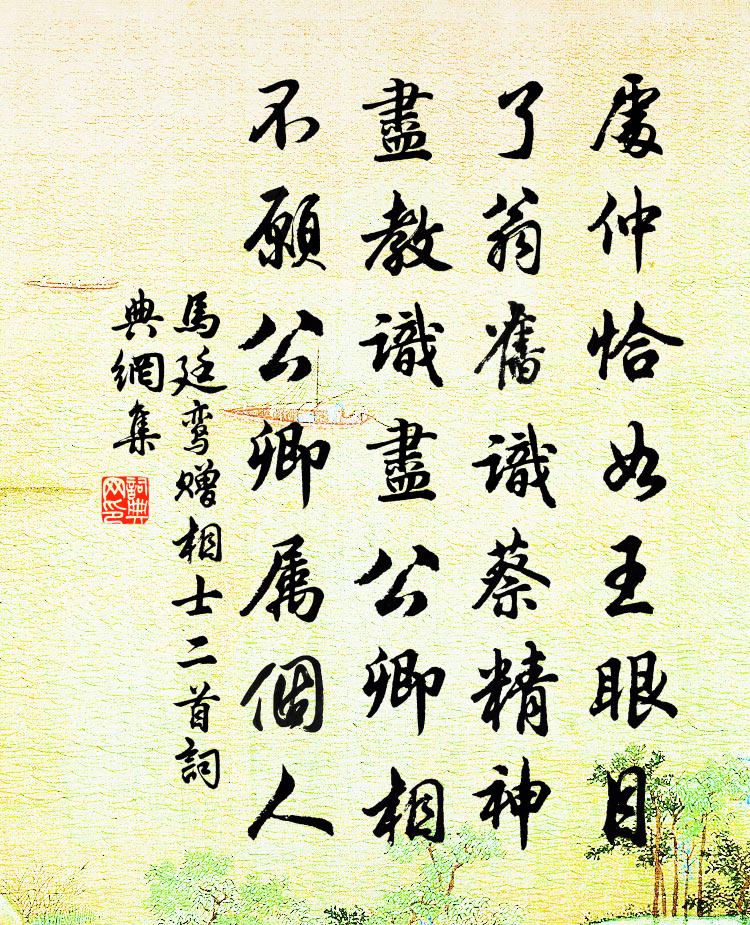 處仲恰如王眼目
了翁舊識蔡精神
盡教識盡公卿相
不願公卿属個人
馬廷鸾赠相士二首詞
典網集
詞典
网印